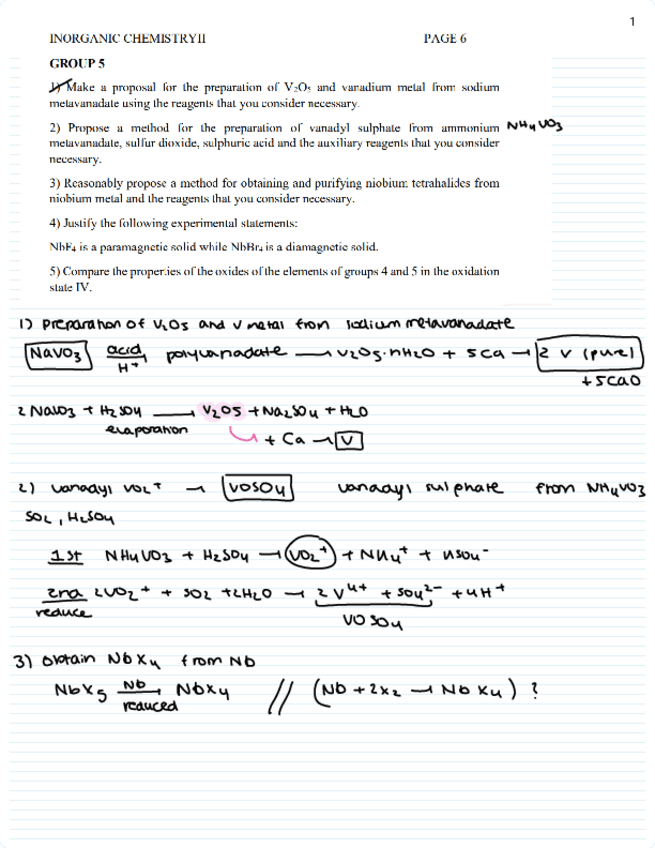 1
INORGANIC CHEMISTRY II PAGE 6
GROUP 5
1) Make a proposal for the preparation of V₂O₅ and vanadium metal from sodium
metavanadate using the reagents that you consider necessary.
2) Propose a method for the preparation of vanadyl sulphate from ammonium NH4VO3
metavanadate, sulfur dioxide, sulphuric acid and the auxiliary reagents that you consider
necessary.
3) Reasonably propose a method for obtaining and purifying niobium tetrahalides from
niobium metal and the reagents that you consider necessary.
4) Justify the following experimental statements:
NbF₄ is a paramagnetic solid while NbBr₄ is a diamagnetic solid.
5) Compare the properties of the oxides of the elements of groups 4 and 5 in the oxidation
state IV.
1) Preparation of V2O5 and V metal from sodium metavanadate
NaVO3 acid H+ → polyvanadate → V2O5·nH2O + 5Ca → 2 V (pure)
+ 5CaO
2 NaVO3 + H2SO4 → V2O5 + Na2SO4 + H2O
evaporation + Ca → V
2) vanadyl VO2+ → VOSO4 vanadyl sulphate from NH4VO3
SO2, H2SO4
1st NH4VO3 + H2SO4 → VO2+ + NH4+ + HSO4-
2nd 2VO2+ + SO2 + 2H2O → 2 V4+ + SO4 2- + 4H+
reduce VOSO4
3) Obtain NbX4 from Nb
NbX5 Nb → NbX4 // (Nb + 2X2 → NbX4) ?
reduced